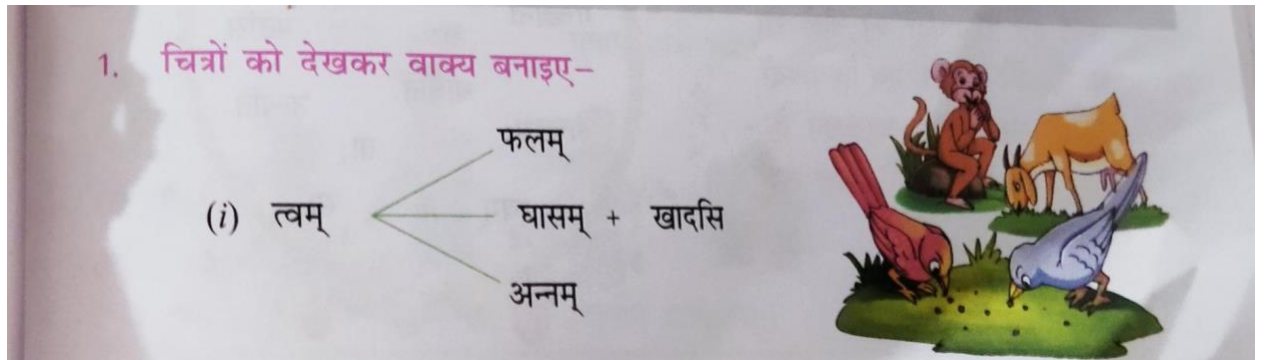 1. चित्रों को देखकर वाक्य बनाइए–
फलम्
(i) त्वम् घासम् + खादसि
अन्नम्